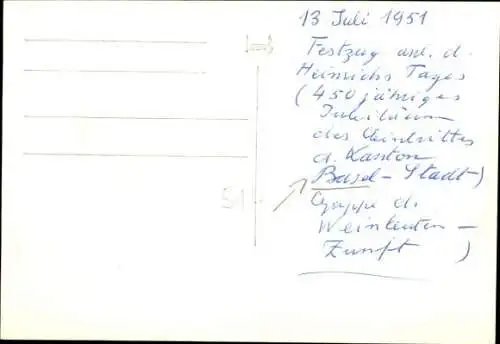 13 Juli 1951
Festzug anl. d.
Heinrichs Tages
(450 jähriges
Jubiläum
des Eintrittes
d. Kanton
Basel-Stadt)
Gruppe d.
Weinleuten-
Zunft )
51